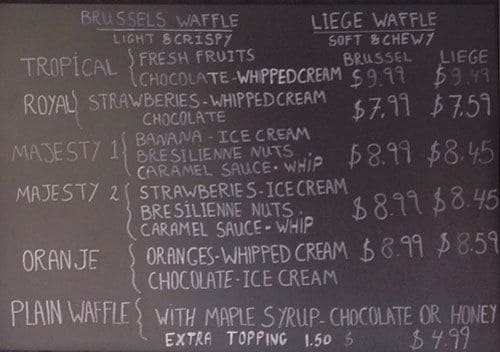 BRUSSELS WAFFLE LIEGE WAFFLE
LIGHT & CRISPY SOFT & CHEWY
BRUSSEL LIEGE
TROPICAL { FRESH FRUITS
CHOCOLATE-WHIPPED CREAM $9.99 $9.49
ROYAL } STRAWBERIES-WHIPPED CREAM $7,99 $7.59
CHOCOLATE
MAJESTY 1 { BANANA - ICE CREAM
BRESILIENNE NUTS $8.99 $8.45
CARAMEL SAUCE - WHIP
MAJESTY 2 { STRAWBERIES-ICE CREAM
BRESILIENNE NUTS $8.99 $8.45
CARAMEL SAUCE-WHIP
ORANJE { ORANGES-WHIPPED CREAM $8.99 $8.59
CHOCOLATE-ICE CREAM
PLAIN WAFFLE { WITH MAPLE SYRUP-CHOCOLATE OR HONEY
EXTRA TOPPING 1.50 $ $4.99